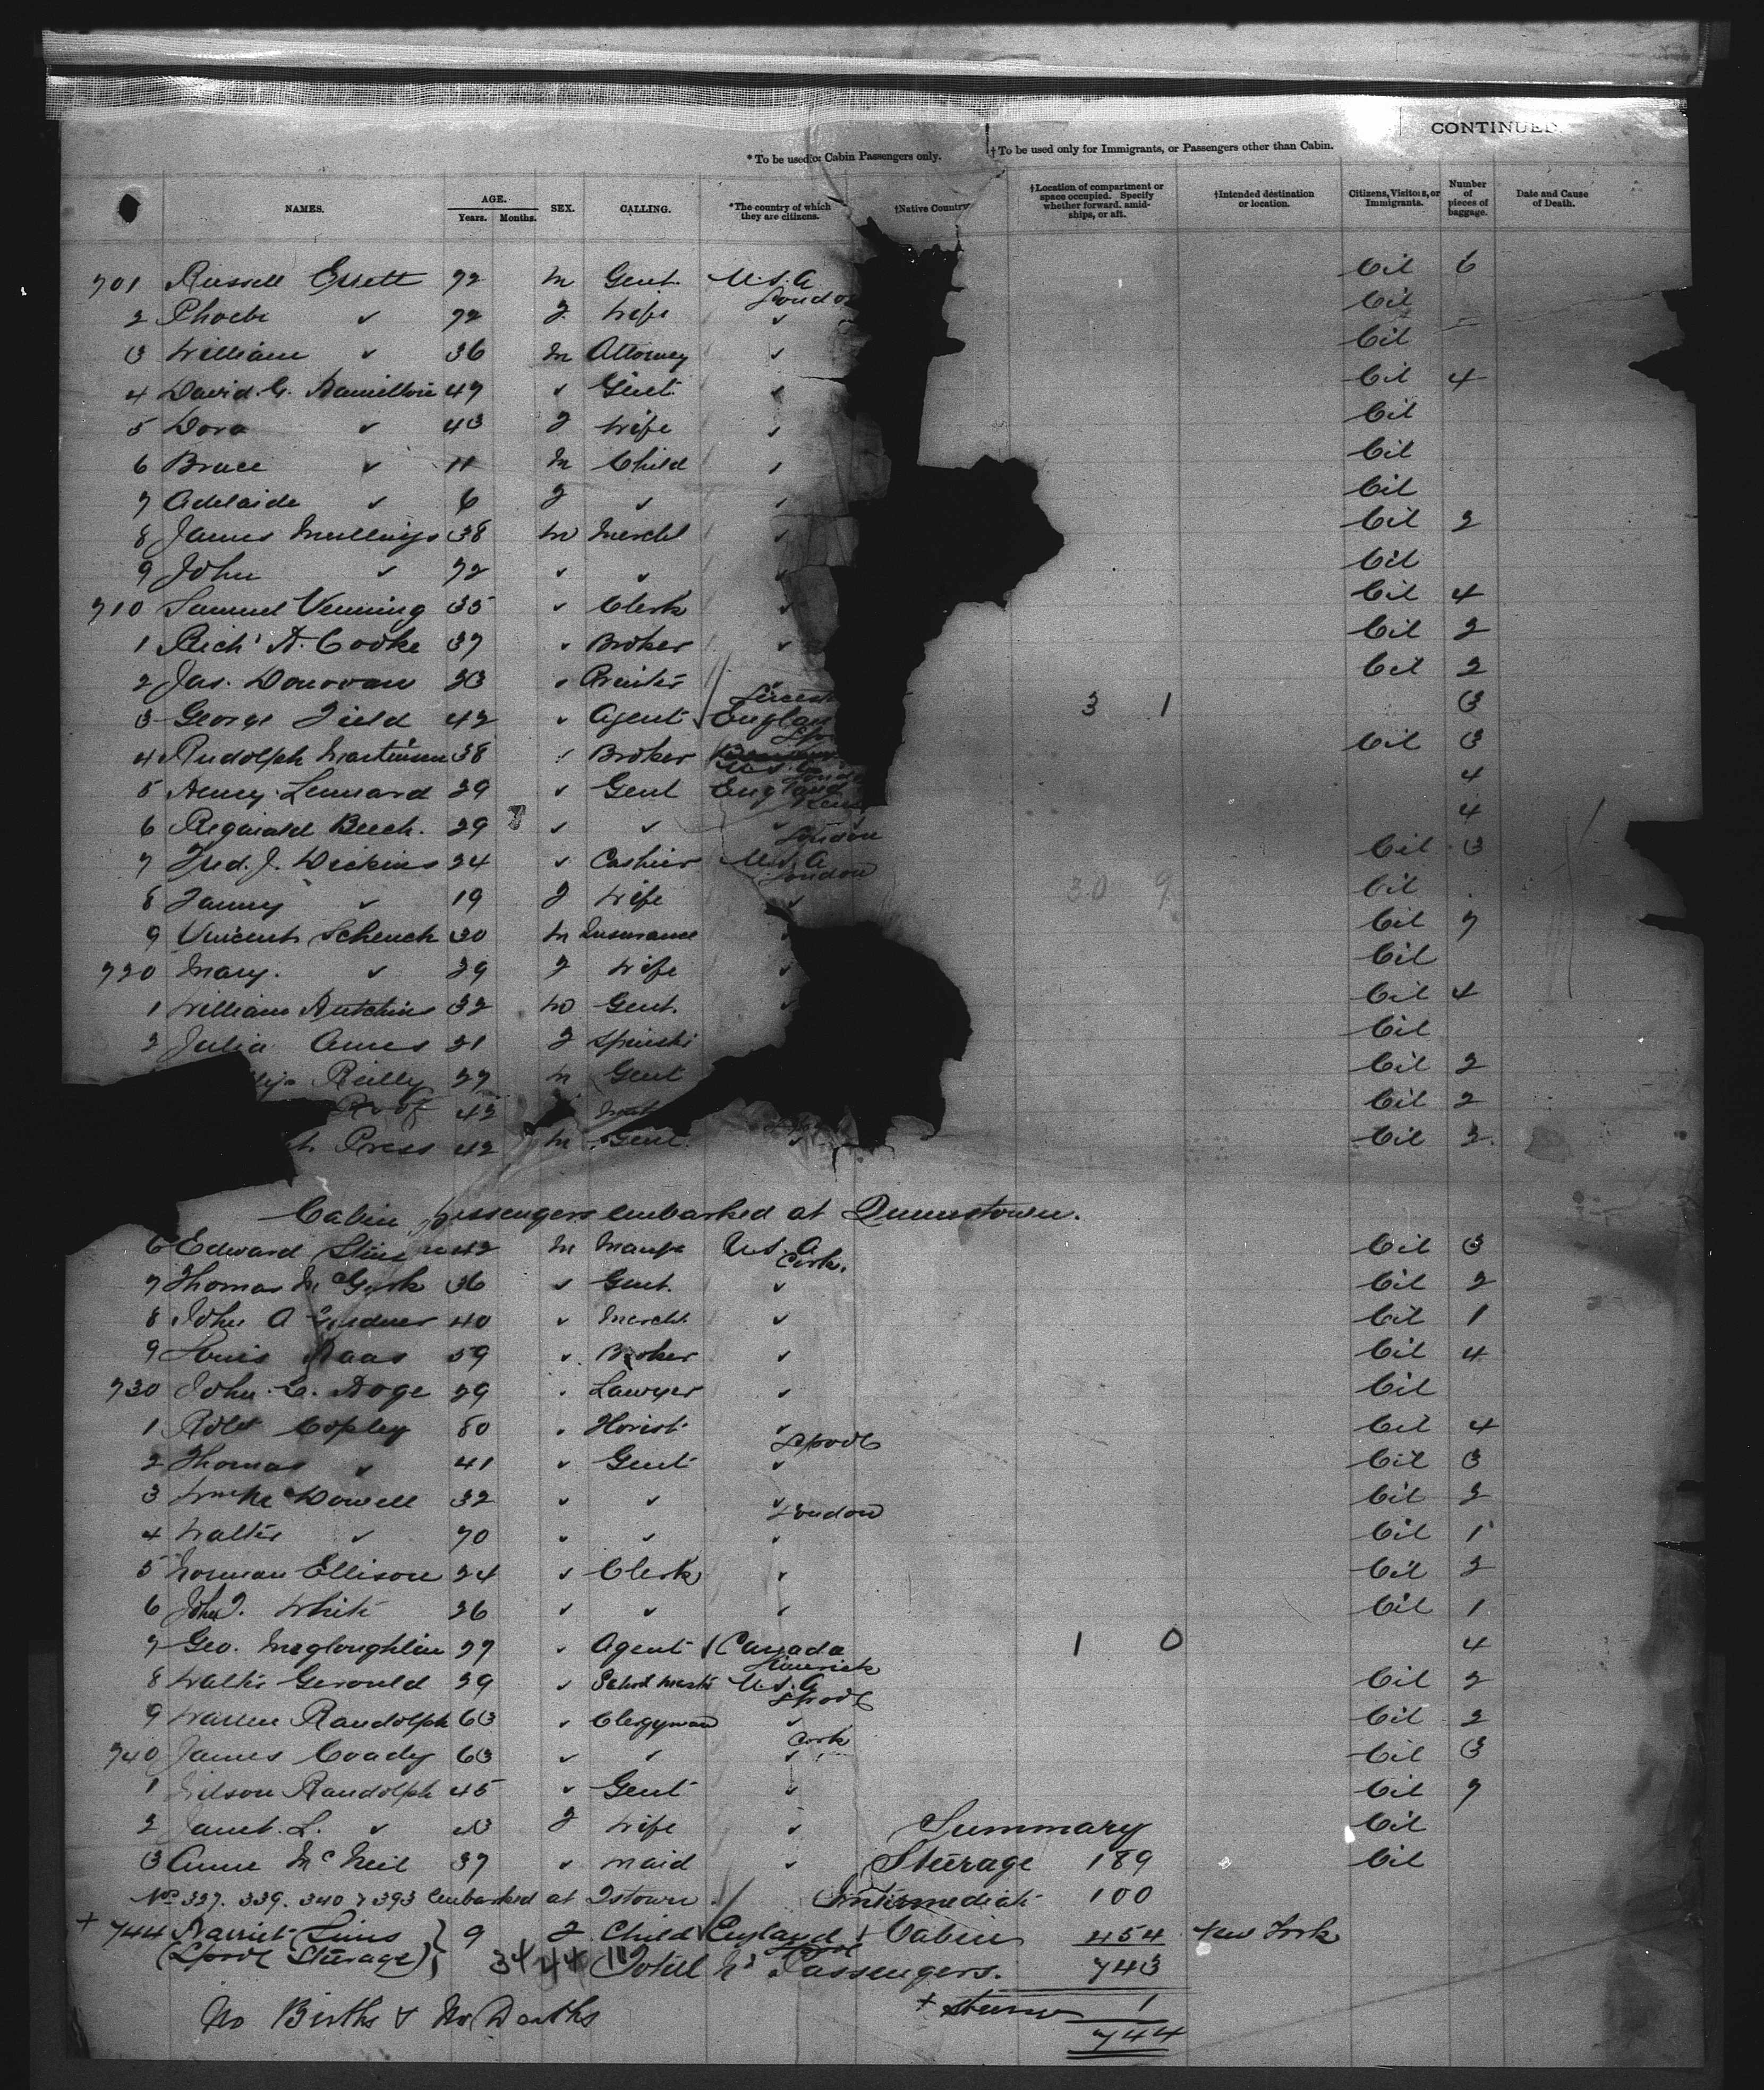 CONTINUED.
* To be used for Cabin Passengers only. † To be used only for Immigrants, or Passengers other than Cabin.
NAMES. AGE. Years. Months. SEX. CALLING. *The country of which they are citizens. †Native Country †Location of compartment or space occupied. Specify whether forward, amidships, or aft. †Intended destination or location. Citizens, Visitors, or Immigrants. Number of pieces of baggage. Date and Cause of Death.
701 Russell Errett 72 M Gent. U.S.A Cit 6
London
2 Phoebe ✓ 72 F Wife ✓ Cit
3 William ✓ 36 M Attorney ✓ Cit
4 David G. Hamilton 47 ✓ Gent. ✓ Cit 4
5 Dora ✓ 43 F Wife ✓ Cit
6 Bruce ✓ 11 M Child ✓ Cit
7 Adelaide ✓ 6 F ✓ ✓ Cit
8 James Mullings 38 M Mercht ✓ Cit 2
9 John ✓ 72 ✓ ✓ ✓ Cit
710 Samuel Venning 35 ✓ Clerk ✓ Cit 4
1 Rich' A. Cooke 37 ✓ Broker ✓ Cit 2
2 Jas. Donovan 23 ✓ Printer Cit 2
3 George Field 42 ✓ Agent England 3 1 3
4 Rudolph Martinsen 38 ✓ Broker U.S.A Cit 3
5 Henry Lennard 29 ✓ Gent England 4
6 Reginald Beech. 29 ✓ ✓ 4
London
7 Fred. J. Dickins 24 ✓ Cashier U.S.A Cit 3
London
8 Fanny ✓ 19 F Wife ✓ 30 9 Cit
9 Vincent Schenck 30 M Insurance ✓ Cit 7
720 Mary. ✓ 29 F Wife ✓ Cit
1 William Hutchins 32 M Gent. ✓ Cit 4
2 Julia Ames 21 F Spinster Cit
Reilly 27 M Gent Cit 2
Roof 42 Cit 2
Press 42 M Gent. ✓ Cit 2
Cabin passengers embarked at Queenstown.
6 Edward 42 M U.S.A Cit 3
Cork.
7 Thomas McGurk 36 ✓ Gent. ✓ Cit 2
8 John A Gardner 40 ✓ Mercht. ✓ Cit 1
9 Louis Haas 59 ✓ Broker ✓ Cit 4
730 John C. Hoge 29 ✓ Lawyer ✓ Cit
1 Robt Copley 80 ✓ Florist ✓ Cit 4
Lpool
2 Thomas ✓ 41 ✓ Gent ✓ Cit 3
3 Wm McDowell 32 ✓ ✓ ✓ Cit 2
London
4 Walter ✓ 70 ✓ ✓ ✓ Cit 1
5 Norman Ellison 24 ✓ Clerk ✓ Cit 2
6 John J. White 26 ✓ ✓ ✓ Cit 1
7 Geo. Mcgloughlin 27 ✓ Agent Canada 1 0 4
Limerick
8 Walter Gerould 29 ✓ School Master U.S.A Cit 2
Lpool
9 Warren Randolph 63 ✓ Clergyman ✓ Cit 2
Cork
740 James Coady 63 ✓ ✓ ✓ Cit 3
1 Wilson Randolph 45 ✓ Gent ✓ Cit 7
2 Janet L. ✓ F Wife ✓ Summary Cit
3 Anne McNeil 37 ✓ Maid ✓ Steerage 189 Cit
Nos 337. 339. 340 & 393 Embarked at Qstown. Intermediate 100
+ 744 Harriet Sims } 9 F Child England Cabin 454 New York
(Lpool Steerage) } Total No Passengers. 743
+ Steerage 1
No Births & No Deaths
744